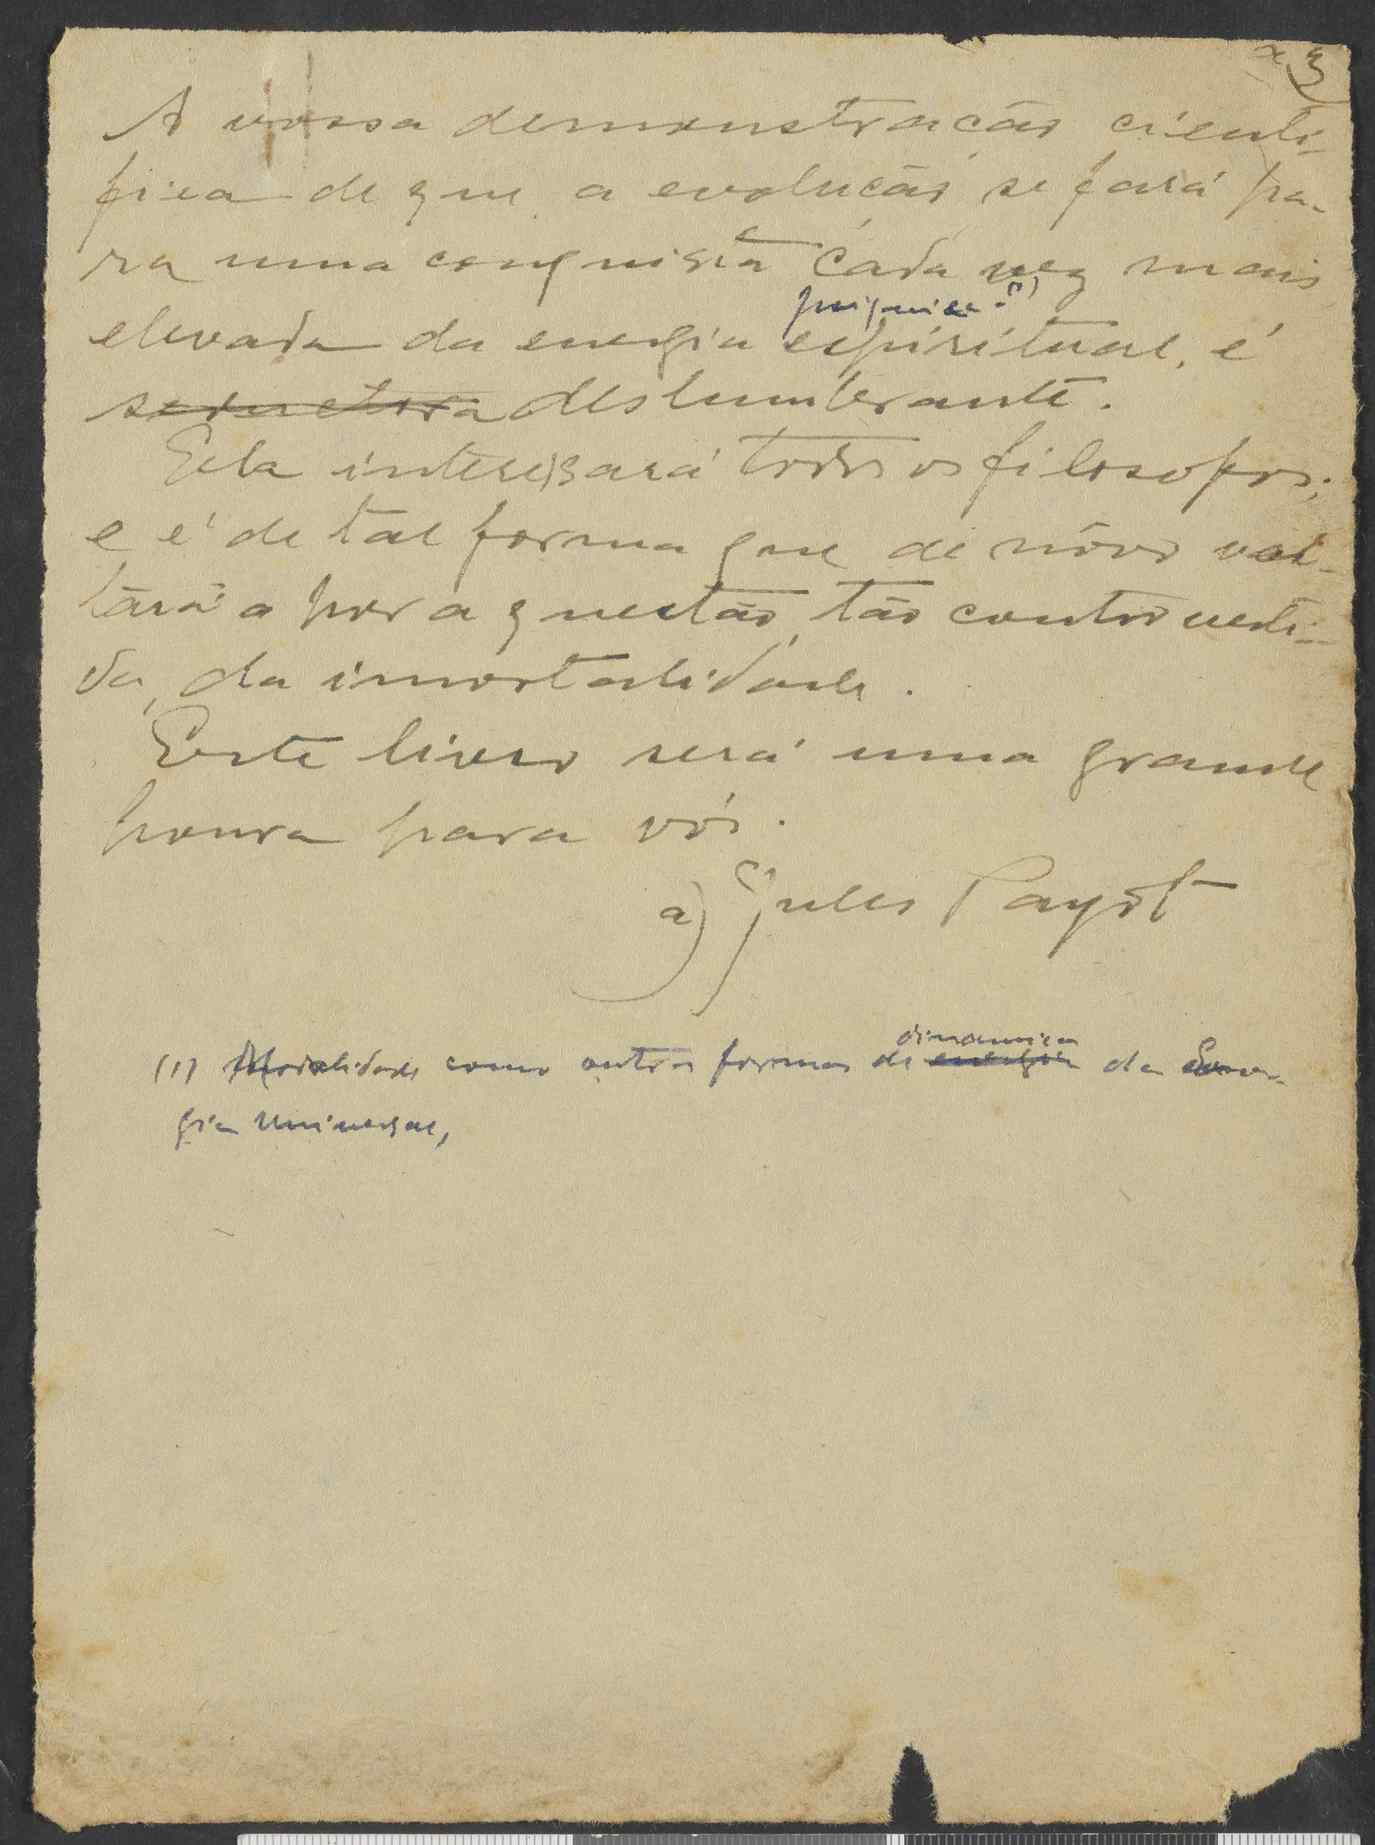 3
A vossa demonstracão cienti-
fica de que a evolucão se fará pa-
ra uma conquista cada vez mais
psiquica (1)
elevada da energia espiritual, é
seductora deslumbrante.
Ela interessará todos os filosofos;
e é de tal forma que de nôvo vol-
tará a por a questão, tão controverti-
da, da imortalidade.
Este livro será uma grande
honra para vós.
a) Jules Payot
dinamica
(1) como outra forma de energia da Ener-
gia Universal,